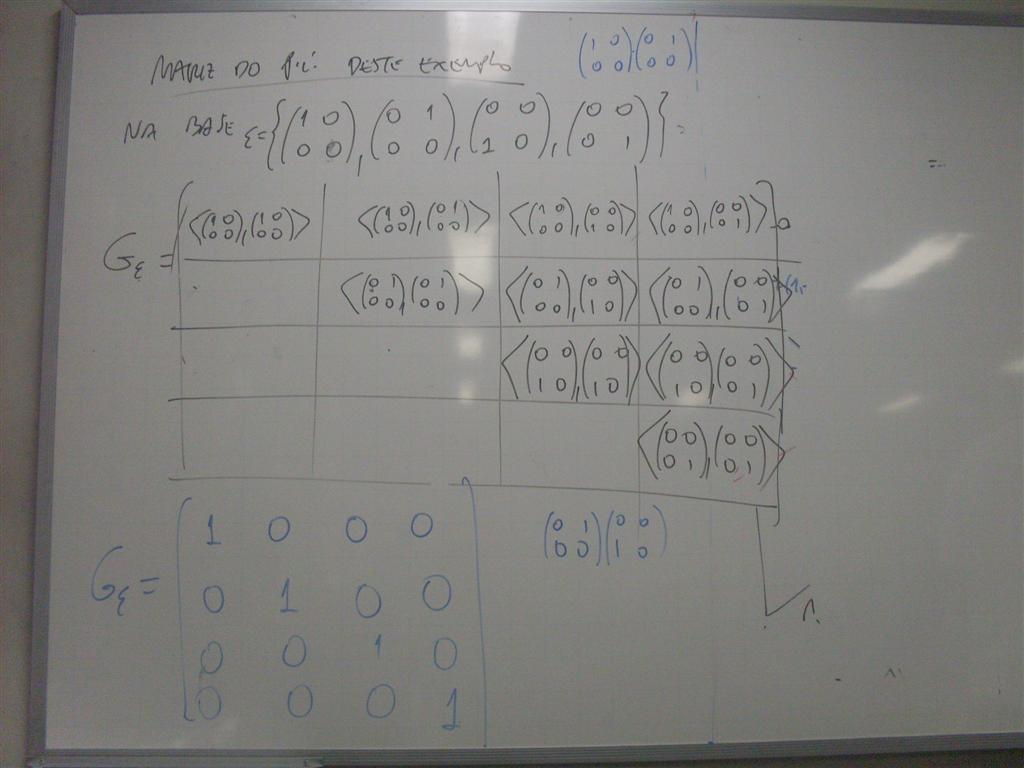 MATRIZ DO p.i. DESTE EXEMPLO (1 0 0 0)(0 1 0 0)
NA BASE ε={(1 0 0 0),(0 1 0 0),(0 0 1 0),(0 0 0 1)}=
Gε = <(1 0 0 0),(1 0 0 0)> <(1 0 0 0),(0 1 0 0)> <(1 0 0 0),(0 0 1 0)> <(1 0 0 0),(0 0 0 1)>
<(0 1 0 0),(0 1 0 0)> <(0 1 0 0),(0 0 1 0)> <(0 1 0 0),(0 0 0 1)>
<(0 0 1 0),(0 0 1 0)> <(0 0 1 0),(0 0 0 1)>
<(0 0 0 1),(0 0 0 1)>
Gε =
1 0 0 0
0 1 0 0
0 0 1 0
0 0 0 1
(0 1 0 0)(0 0 1 0)